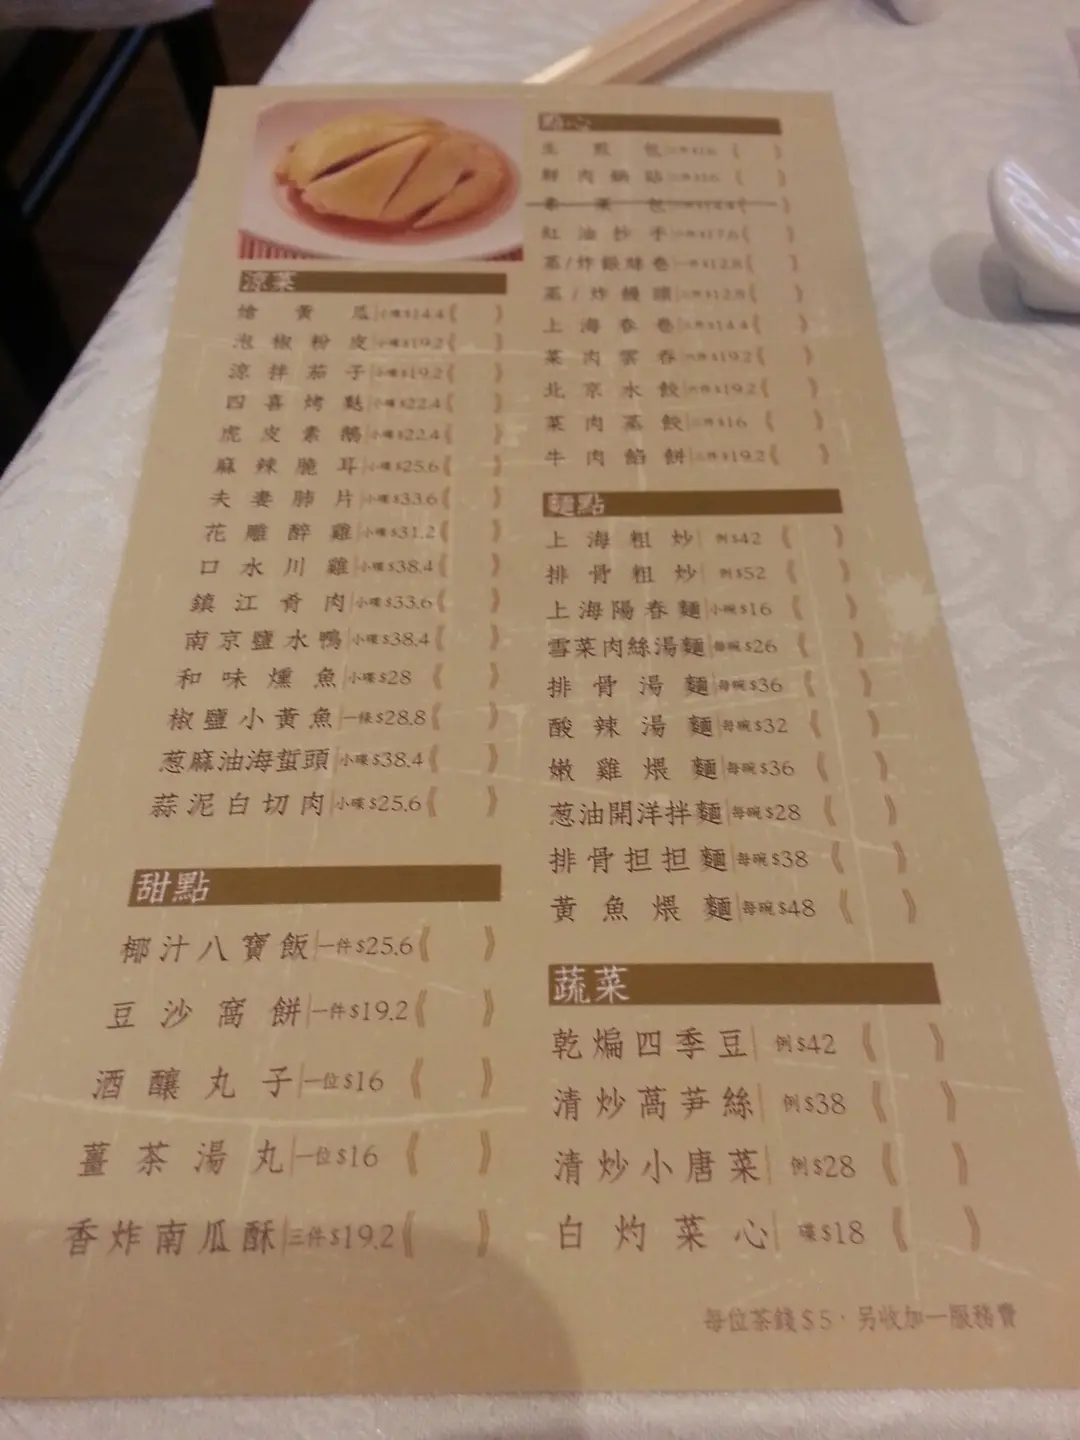 涼菜
熗黃瓜 小碟$14.4《 》
泡椒粉皮 小碟$19.2《 》
涼拌茄子 小碟$19.2《 》
四喜烤麩 小碟$22.4《 》
虎皮素鵝 小碟$22.4《 》
麻辣脆耳 小碟$25.6《 》
夫妻肺片 小碟$33.6《 》
花雕醉雞 小碟$31.2《 》
口水川雞 小碟$38.4《 》
鎮江肴肉 小碟$33.6《 》
南京鹽水鴨 小碟$38.4《 》
和味燻魚 小碟$28《 》
椒鹽小黃魚 一條$28.8《 》
葱麻油海蜇頭 小碟$38.4《 》
蒜泥白切肉 小碟$25.6《 》
甜點
椰汁八寶飯 一件$25.6《 》
豆沙窩餅 一件$19.2《 》
酒釀丸子 一位$16《 》
薑茶湯丸 一位$16《 》
香炸南瓜酥 三件$19.2《 》
點心
生煎包 《 》
鮮肉鍋貼 《 》
素菜包 $14.4《 》
紅油抄手 $17.6《 》
蒸/炸銀絲卷 一件$12.8《 》
蒸/炸饅頭 $12.8《 》
上海春卷 $14.4《 》
菜肉雲吞 六件$19.2《 》
北京水餃 六件$19.2《 》
菜肉蒸餃 $16《 》
牛肉餡餅 $19.2《 》
麵點
上海粗炒 例$42《 》
排骨粗炒 例$52《 》
上海陽春麵 小碗$16《 》
雪菜肉絲湯麵 每碗$26《 》
排骨湯麵 每碗$36《 》
酸辣湯麵 每碗$32《 》
嫩雞煨麵 每碗$36《 》
葱油開洋拌麵 每碗$28《 》
排骨担担麵 每碗$38《 》
黃魚煨麵 每碗$48《 》
蔬菜
乾煸四季豆 例$42《 》
清炒萵笋絲 例$38《 》
清炒小唐菜 例$28《 》
白灼菜心 碟$18《 》
每位茶錢$5，另收加一服務費